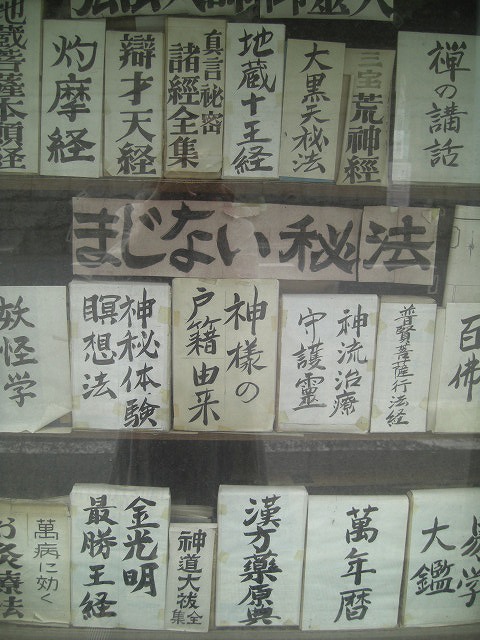 地蔵菩薩本願経
灼摩経
辯才天経
真言秘密
諸經全集
地蔵十王経
大黒天秘法
三宝荒神經
禅の講話
まじない秘法
妖怪学
神秘体験
瞑想法
神様の
戸籍由来
神流治療
守護霊
普賢菩薩行法経
百佛
萬病に効く
お灸療法
金光明
最勝王経
神道大祓全集
漢方薬原典
萬年暦
易学
大鑑